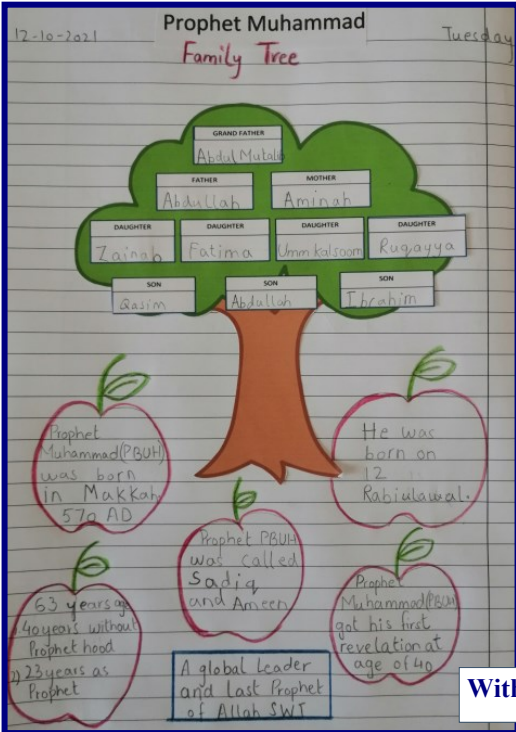 Prophet Muhammad
12-10-2021
Tuesday
Family Tree
GRAND FATHER
Abdul Mutalib
FATHER
Abdullah
MOTHER
Aminah
DAUGHTER
Zainab
DAUGHTER
Fatima
DAUGHTER
Umm kalsoom
DAUGHTER
Ruqayya
SON
Qasim
SON
Abdullah
SON
Ibrahim
Prophet
Muhammad(PBUH)
was born
in Makkah
570 AD
He was
born on
12
Rabiulawal.
Prophet PBUH
was called
Sadiq
and Ameen
63 years age
40 years without
Prophet hood
2) 23 years as
Prophet
Prophet
Muhammad(PBUH)
got his first
revelation at
age of 40
A global Leader
and Last Prophet
of Allah SWT
With